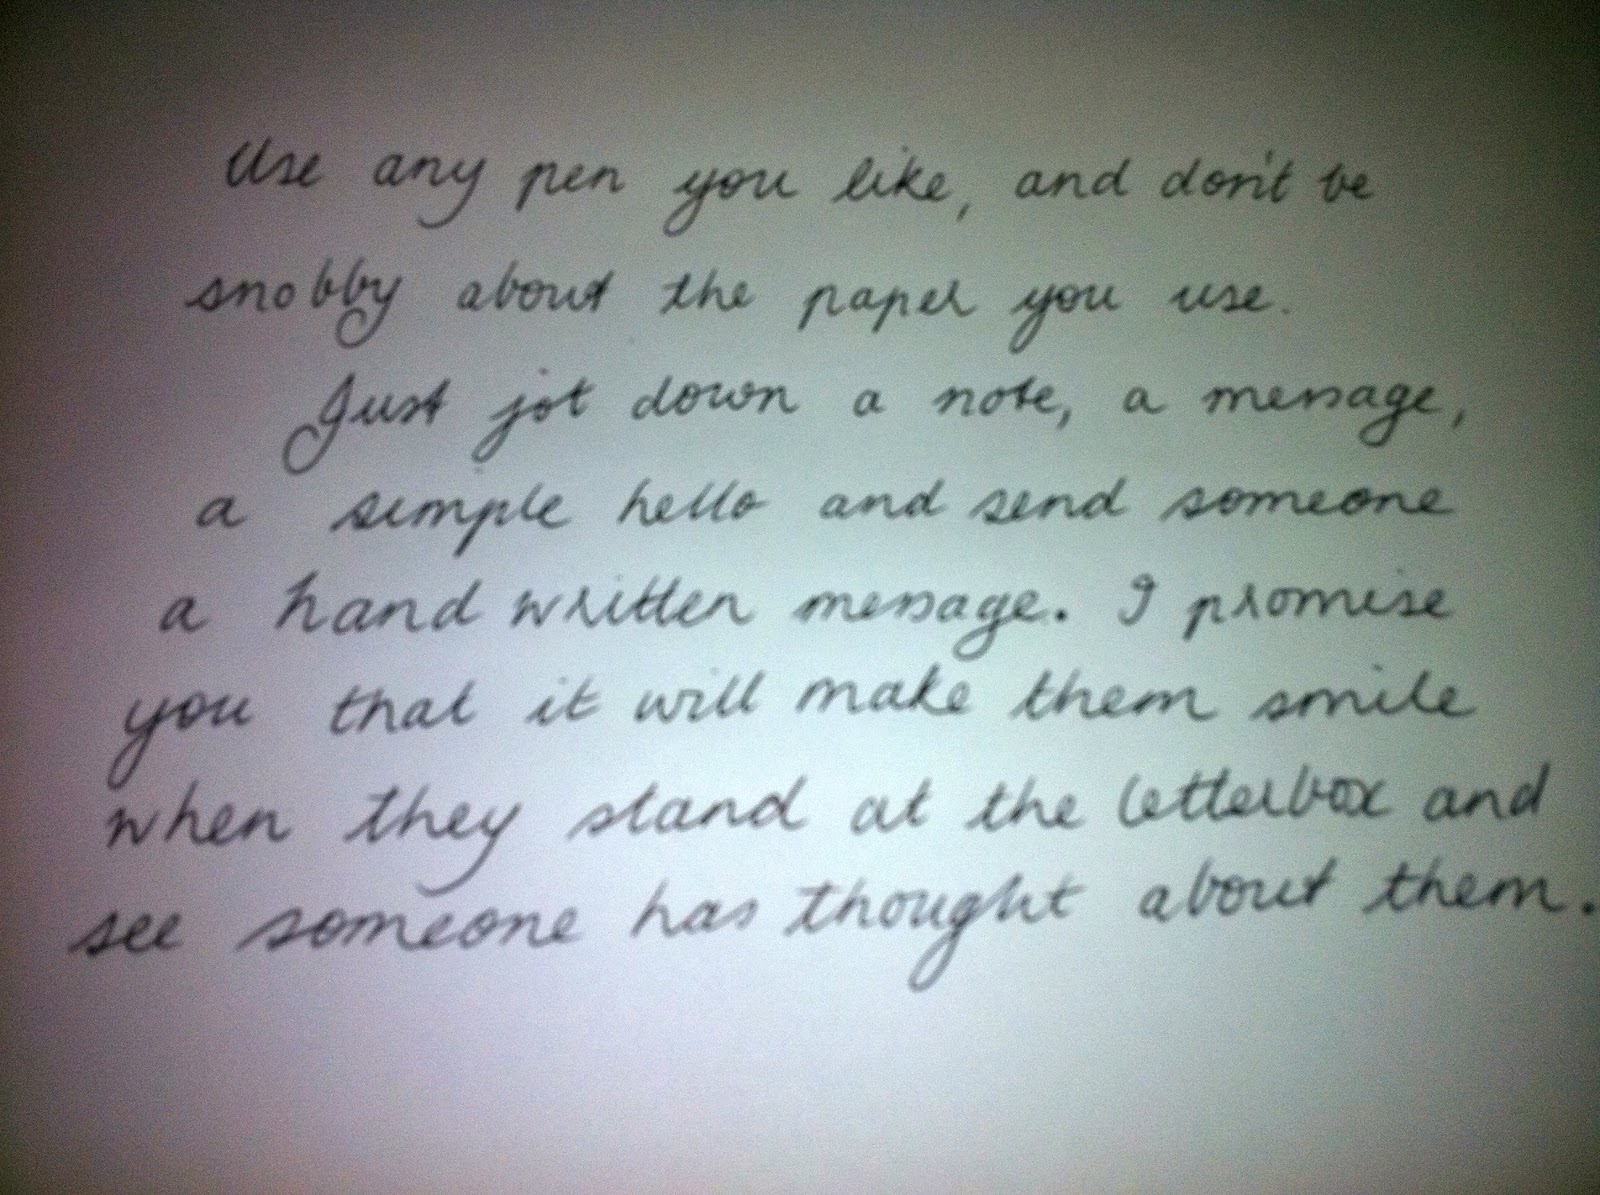 Use any pen you like, and don't be
snobby about the paper you use.
Just jot down a note, a message,
a simple hello and send someone
a hand written message. I promise
you that it will make them smile
when they stand at the letterbox and
see someone has thought about them.